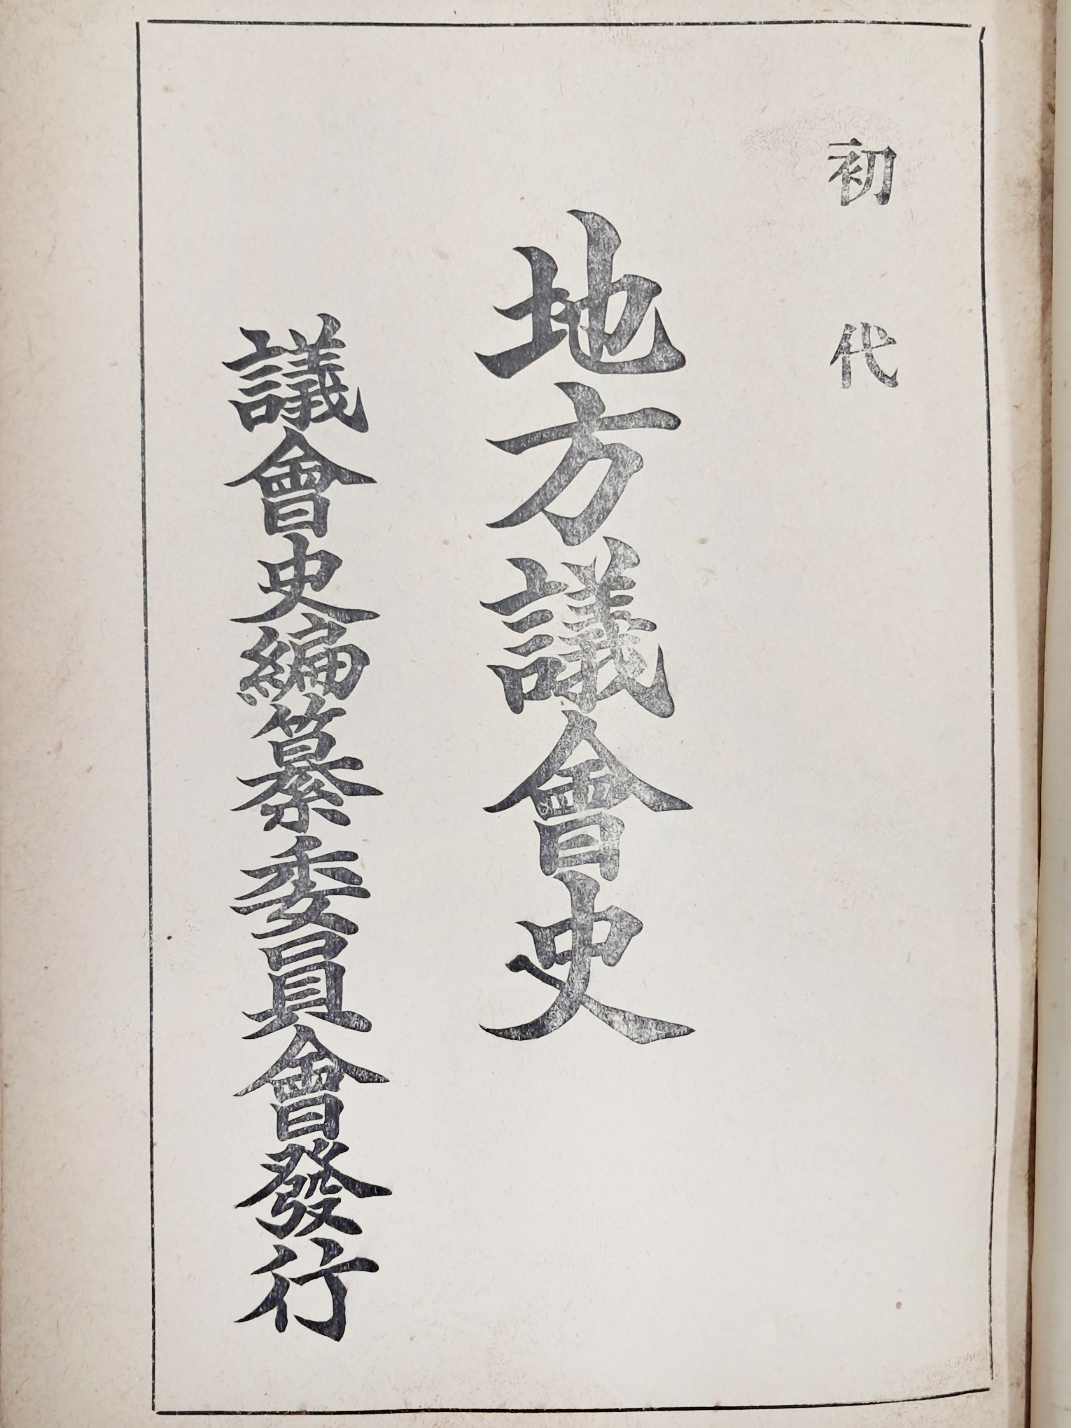 初代
地方議會史
議會史編纂委員會發行